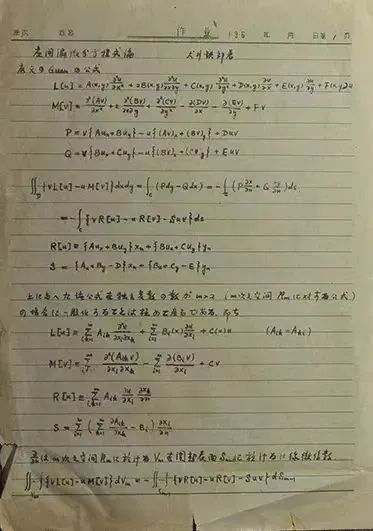 作 業 195 年 月 日 第 1 頁
応用偏微分方程式論 犬井鉄郎著
広义の Green の公式
L[u] = A(x,y) ∂²u/∂x² + 2B(x,y) ∂²u/∂x∂y + C(x,y) ∂²u/∂y² + D(x,y) ∂u/∂x + E(x,y) ∂u/∂y + F(x,y)u
M[v] = ∂²(Av)/∂x² + 2 ∂²(Bv)/∂x∂y + ∂²(Cv)/∂y² - ∂(Dv)/∂x - ∂(Ev)/∂y + Fv
P = v{Auₓ + Buᵧ} - u{(Av)ₓ + (Bv)ᵧ} + Duv
Q = v{Buₓ + Cuᵧ} - u{(Bv)ₓ + (Cv)ᵧ} + Euv
∬_D {vL[u] - uM[v]}dxdy = ∫_C (Pdy - Qdx) = -∫_C (P ∂x/∂n + Q ∂y/∂n) ds
= -∫_C {vR[u] - uR[v] - Suv} ds
R[u] ≡ {Auₓ + Buᵧ} xₙ + {Buₓ + Cuᵧ} yₙ
S = {Aₓ + Bᵧ - D} xₙ + {Bₓ + Cᵧ - E} yₙ
上に与へた諸公式を独立変数の数が m>2 (m次元空間 Rm に対する公式)
の場合に一般化することは極めて容易である。即ち
L[u] = Σ Aik ∂²u/∂xi∂xk + Σ Bi(x) ∂u/∂xi + C(x)u (Aik = Aki)
M[v] = Σ ∂²(Aik v)/∂xi∂xk - Σ ∂(Biv)/∂xi + Cv
R[u] ≡ Σ Aik ∂u/∂xi ∂xk/∂n
S = Σ (Σ ∂Aik/∂xk - Bi) ∂xi/∂n
m次元空間 Rm に於ける Vm
∫…∫_Vm {vL[u] - uM[v]} dVm = -∫…∫_Sm-1 {vR[u] - uR[v] - Suv} dSm-1